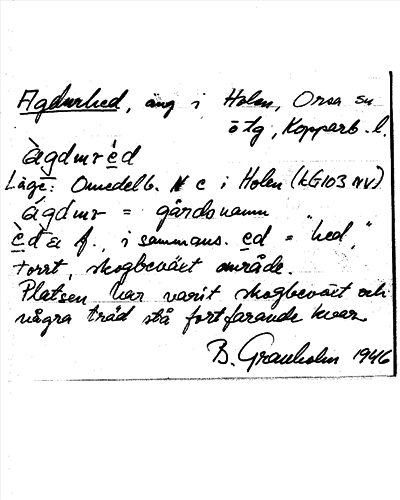 Agdurhed, äng i Holen, Orsa sn
ötg, Kopparb. l.
àgdmr èd
Läge: Omedelb. N c i Holen (LG103 NV)
ágdmr = gårdsnamn
èdæ f., i sammans. ed = "hed,"
torrt, skogbeväxt område.
Platsen har varit skogbeväxt och
några träd stå fortfarande kvar
B. Granholm 1946